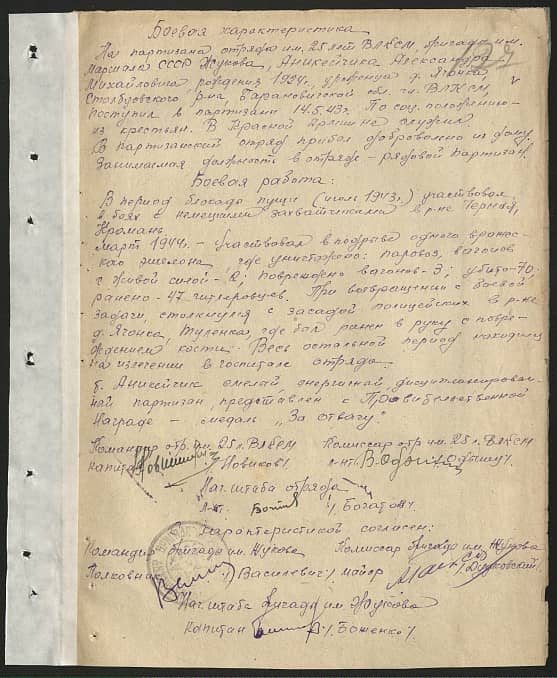 Боевая характеристика
На партизана отряда им. 25 лет ВЛКСМ, бригады им.
Маршала СССР Жукова, Аникейчика Александра
Михайловича, рождения 1924г., уроженца д. Ягонка,
Столбцовского р-на, Барановической обл. чл. ВЛКСМ,
поступил в партизаны 14.5.43г. По соц. положению -
из крестьян. В Красной Армии не служил.
В партизанский отряд прибыл добровольно из дому.
Занимаемая должность в отряде - рядовой партизан.
Боевая работа:
В период блокады пущи (июль 1943г.) участвовал
в боях с немецкими захватчиками в р-не Черная,
Кромань
Март 1944г. - Участвовал в подрыве одного вражес-
кого эшелона где уничтожено: паровоз, вагонов
с живой силой - 2; повреждено вагонов - 3; убито - 70;
ранено - 47 гитлеровцев. При возвращении с боевой
задачи, столкнулся с засадой полицейских в р-не
д. Ягонка, Тулонка, где был ранен в руку с повре-
ждением кости. Весь остальной период находился
на излечении в госпитале отряда.
т. Аникейчик смелый энергичный, дисциплинирован-
ный партизан, представлен к Правительственной
Награде - медаль "За отвагу".
Командир отр. им. 25 л. ВЛКСМ Комиссар отр. им. 25 л. ВЛКСМ
капитан /Новиков/ л-нт
Нач. штаба отряда
л-нт /Богатов/
Характеристикой согласен:
Командир бригады им. Жукова Комиссар бригады им. Жукова
Полковник /Василевич/ майор
Нач. штаба бригады им. Жукова
капитан /Боженко/